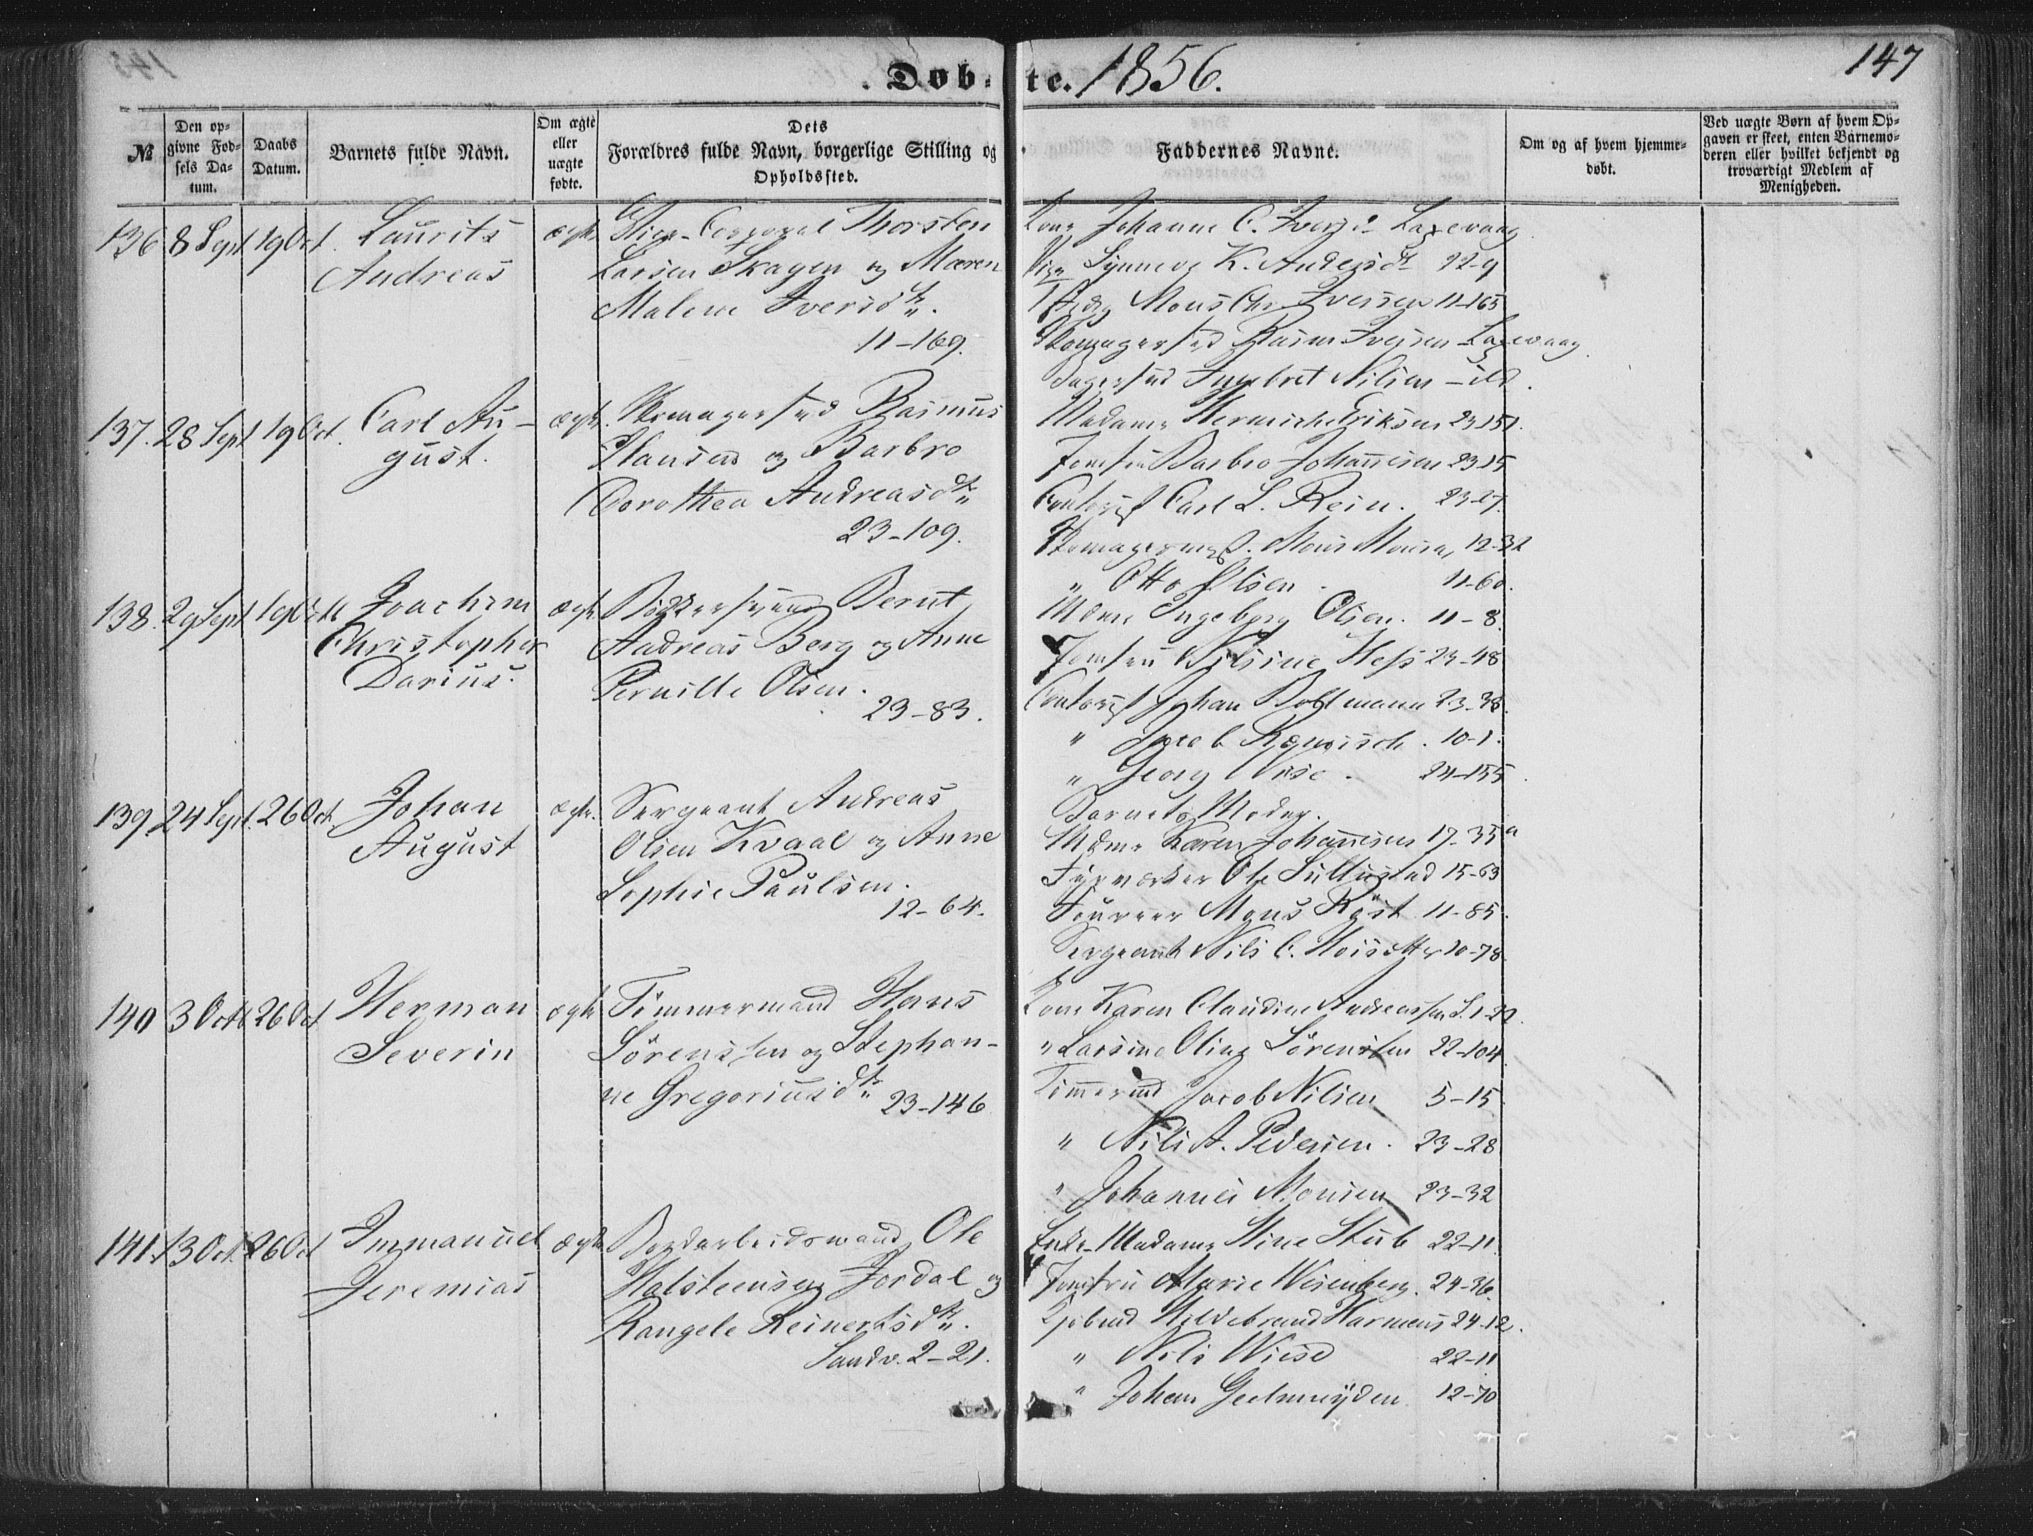 Døb-te. 1856.
147
№
Den op-
givne Fød-
sels Da-
tum.
Daabs
Datum.
Barnets fulde Navn.
Om ægte
eller
uægte
fødte.
Dets
Forældres fulde Navn, borgerlige Stilling og
Opholdssted.
Faddernes Navne.
Om og af hvem hjemme-
døbt.
Ved uægte Børn af hvem Op-
gaven er skeet, enten Barnemo-
deren eller hvilket bekjendt og
troværdigt Medlem af
Menigheden.
136 8 Sept 19 Oct. Laurits
Andreas
ægte
Corporal Thorsten
Larsen Skagen og Maren
Malene Iversdtr.
11-169.
Kone Johanne C. Iversd. Laxevaag
Pige Synneve K. Andersdt 22-9
Mons Chr Iversen 11-165
Skomagersvd Rasm Iversen Laxevaag
Ingebret Nilsen - ibd.
137. 28 Sept 19 Oct. Carl Au-
gust.
ægte.
Skomagersvd Rasmus
Hansen og Barbro
Dorothea Andreasdtr
23-109.
Madame Eriksen 23-151.
Jomfru Barbro Johannesen 23-15
Contorist Carl L. Rein. 23-27.
Skomagermest. Mons Monsen, 12-32
" Otto Olsen 11-60.
138. 29 Sept 19 Oct Joachim
Christopher
Darius.
ægte
Bødkersvend Bernt
Andreas Berg og Anne
Pernille Olsen.
23-83.
Mdme Ingeborg Olsen. 11-8.
Jomfru Nilsine Hess 23-48
Contorist Johan Boltmann 23-38.
" Jacob 10-1.
" Georg Wise. 24-155.
139. 24 Sept. 26 Oct. Johan
August
ægte.
Sergeant Andreas
Olsen Kvaal og Anne
Sophie Paulsen.
12-64.
Barnets Moder.
Mdme Karen Johannesen 17-35a
Fyrværker Ole Sullustad 15-63
Foureer Mons Røst 11-85.
Sergeant Nils C. Hoisætter 10-78
140 3 Oct 26 Oct Herman
Severin
ægte
Timmermand Hans
Sørenssen og Stephan-
ne Gregoriusdtr 23-146
Kone Karen Claudine Andreassen S.1-22.
" Larsine Oline Sørenssen 22-104
Timmermd Jacob Nilsen 5-15
" Nils A. Pedersen. 23-28
" Johannes Monsen 23-32
141. 13 Oct. 26 Oct Immanuel
Jeremias
ægte
Bordarbeidsmand Ole
Halsteensen Jordal og
Rangele Reinertsdtr.
Sandv. 2-21.
Enke-Madame Stine Stub 22-11.
Jomfru Marie Wesenberg. 24-36.
Kjøbmd Hildebrand Harmens 24-12.
" Nils Wiese 22-11
" Johan Geelmuyden 12-70